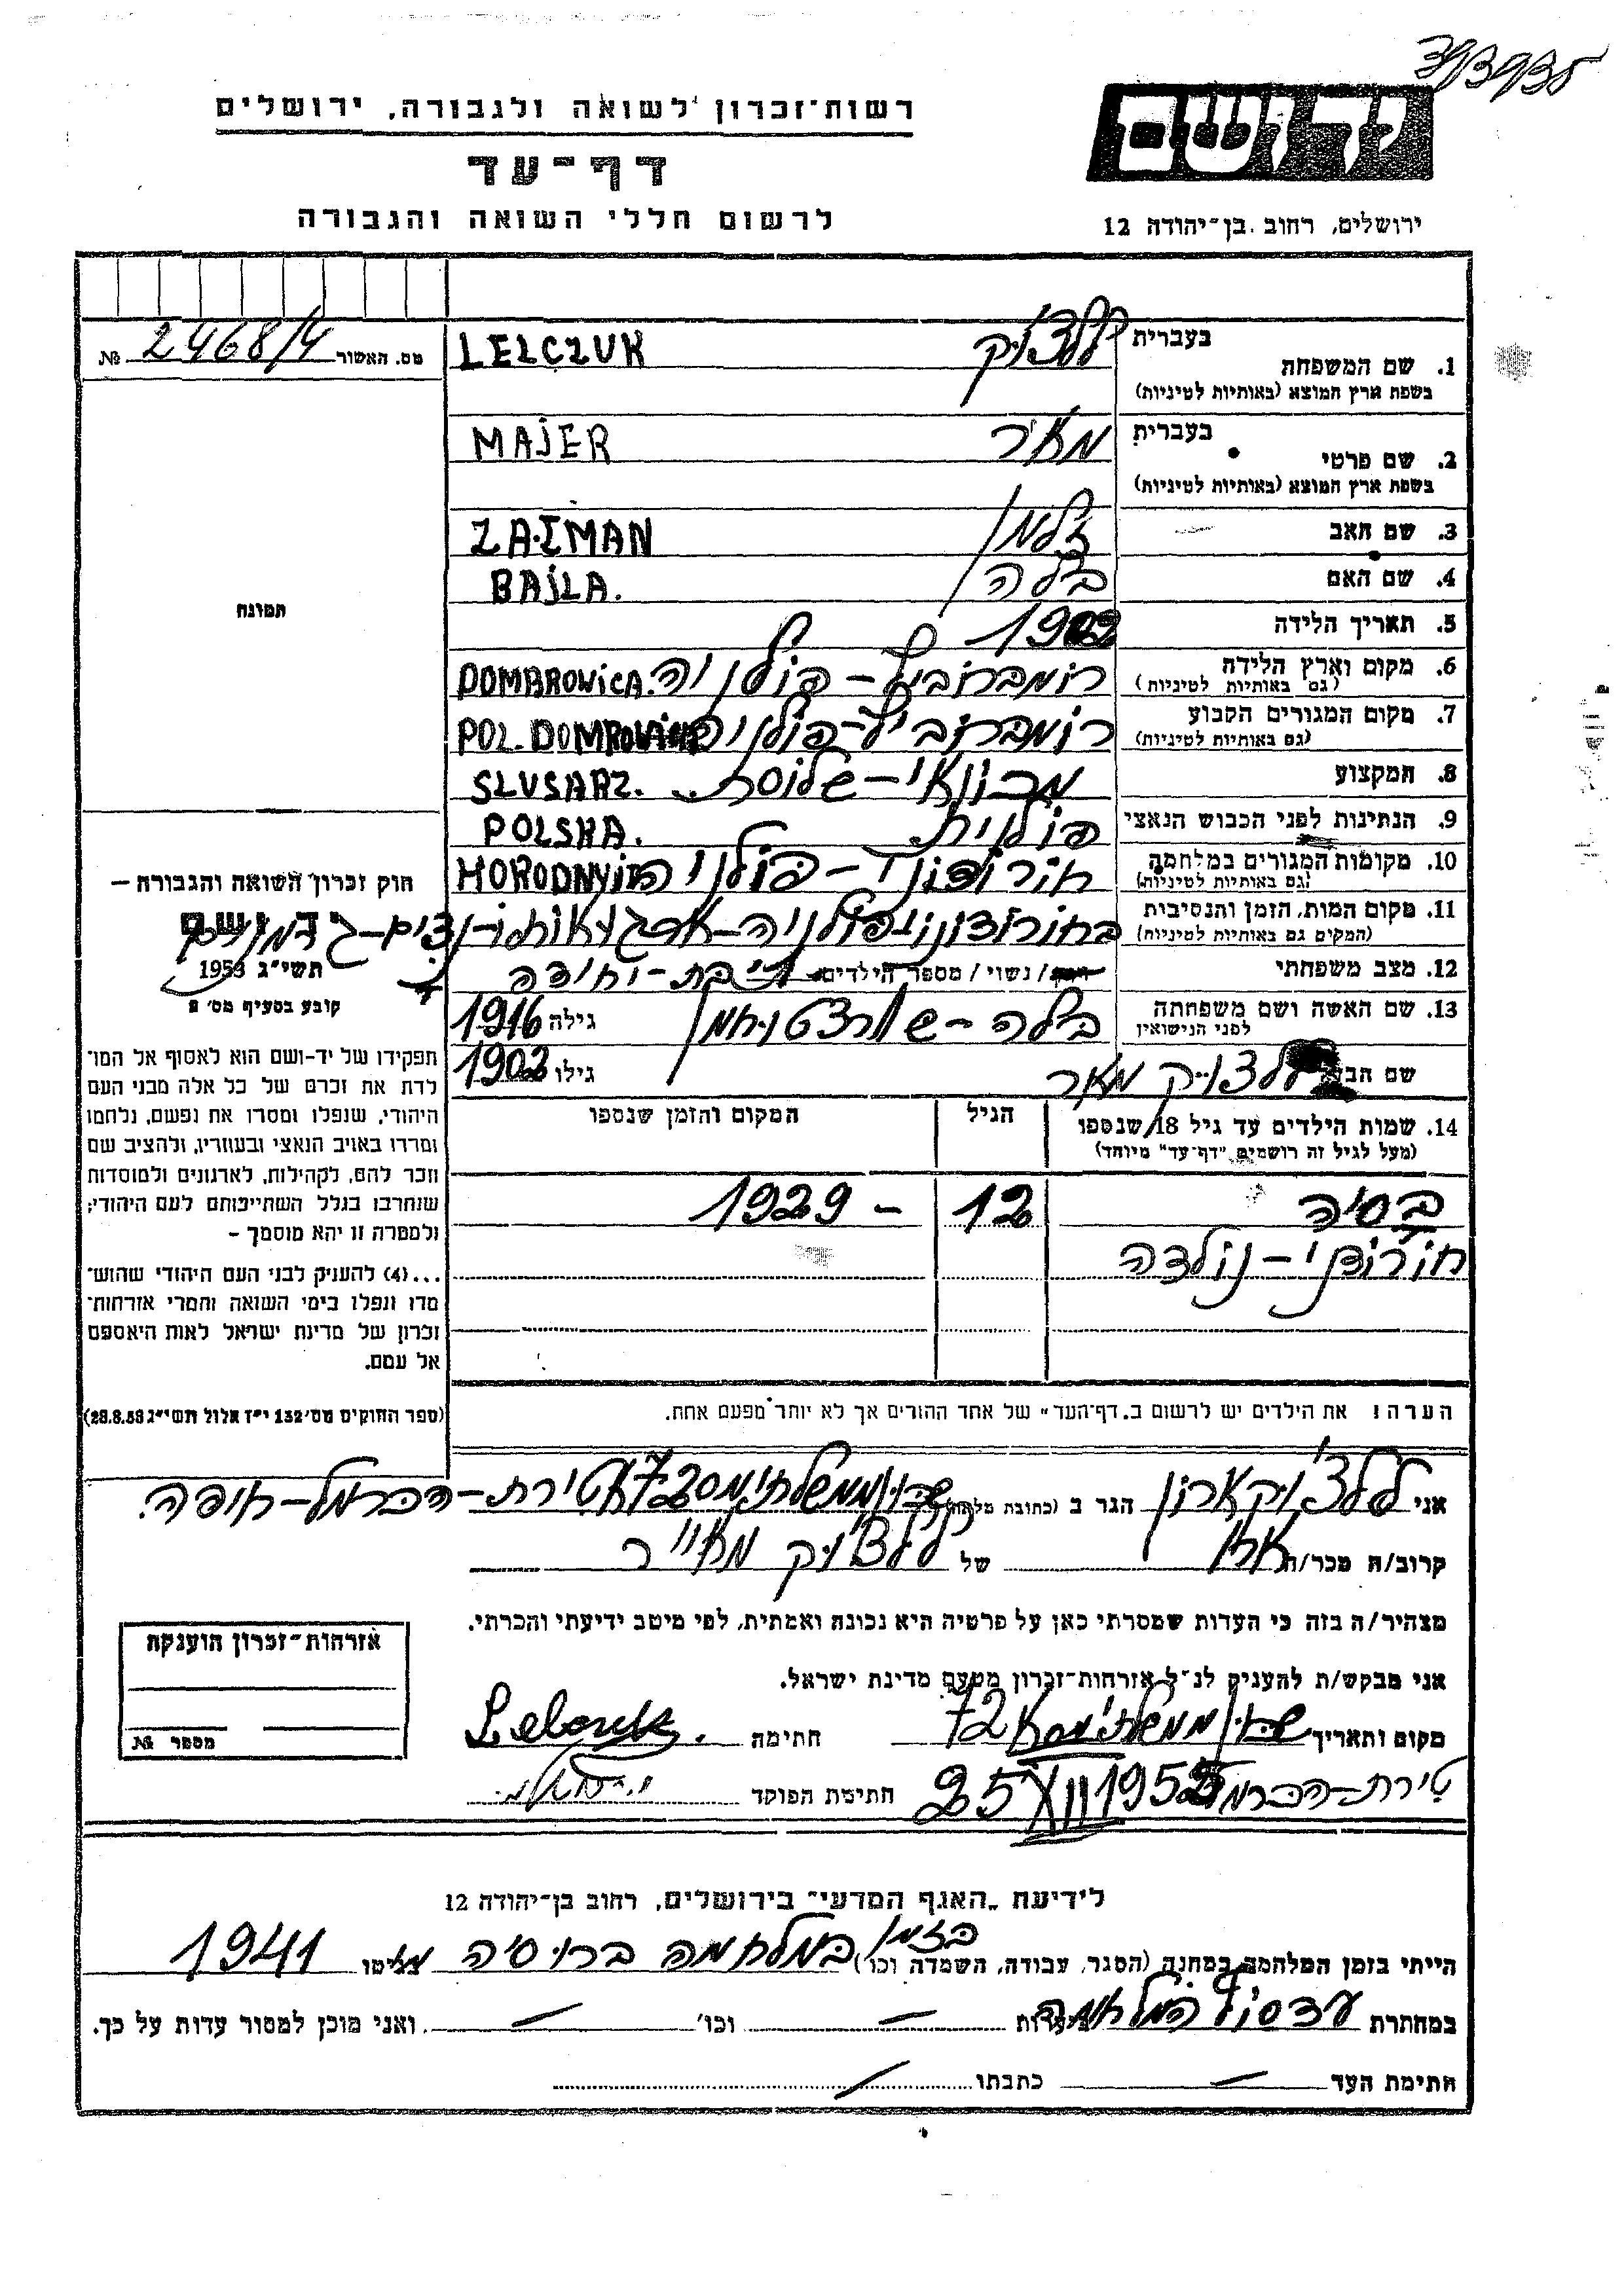 רשות־זכרון לשואה ולגבורה, ירושלים
דף־עד
לרשום חללי השואה והגבורה
ירושלים, רחוב בן־יהודה 12
מס. האשור № 2468/4
בעברית ללצ'וק
1. שם המשפחה LELCZUK
בשפת ארץ המוצא (באותיות לטיניות)
בעברית מאיר
2. שם פרטי MAJER
בשפת ארץ המוצא (באותיות לטיניות)
3. שם האב זלמן ZALMAN
4. שם האם בילה BAJLA.
5. תאריך הלידה 1902
6. מקום וארץ הלידה דומברוביץ – פולניה DOMBROWiCA.
(גם באותיות לטיניות)
7. מקום המגורים הקבוע דומברוביץ – פולניה POL. DOMBROWICA
(גם באותיות לטיניות)
8. המקצוע מכונאי – שלוסר SLUSARZ.
9. הנתינות לפני הכבוש הנאצי פולנית POLSKA.
10. מקומות המגורים במלחמה – פולניה
(גם באותיות לטיניות)
11. מקום המות, הזמן והנסיבות
(המקום גם באותיות לטיניות)
12. מצב משפחתי / נשוי / מספר הילדים בת – יחידה
13. שם האשה ושם משפחתה בילה – גילה 1916
לפני הנישואין
שם הבעל ללצ'וק מאיר גילו 1902
14. שמות הילדים עד גיל 18 שנספו
(מעל לגיל זה רושמים "דף־עד" מיוחד)
הגיל
המקום והזמן שנספו
בסיה 12 – 1929
– נולדה
הערה! את הילדים יש לרשום ב„דף־העד" של אחד ההורים אך לא יותר מפעם אחת.
תמונה
חוק זכרון השואה והגבורה –
יד ושם
תשי"ג 1953
קובע בסעיף מס' 2
תפקידו של יד־ושם הוא לאסוף אל המו־
לדת את זכרם של כל אלה מבני העם
היהודי, שנפלו ומסרו את נפשם, נלחמו
ומרדו באויב הנאצי ובעוזריו, ולהציב שם
וזכר להם, לקהילות, לארגונים ולמוסדות
שנחרבו בגלל השתייכותם לעם היהודי;
ולמטרה זו יהא מוסמך –
...(4) להעניק לבני העם היהודי שהוש־
מדו ונפלו בימי השואה והמרי אזרחות־
זכרון של מדינת ישראל לאות היאספם
אל עמם.
(ספר החוקים מס' 132 י"ז אלול תשי"ג 28.8.53)
אני ללצ'וק אהרון הגר ב (כתובת מלאה) טירת – הכרמל – חיפה.
קרוב/ה מכר/ה אח של ללצ'וק מאייר
מצהיר/ה בזה כי העדות שמסרתי כאן על פרטיה היא נכונה ואמתית, לפי מיטב ידיעתי והכרתי.
אני מבקש/ת להעניק לנ"ל אזרחות־זכרון מטעם מדינת ישראל.
מקום ותאריך 72 חתימה
טירת – הכרמל 25 XII 1955 חתימת הפוקד
אזרחות־זכרון הוענקה
מספר №
לידיעת „האגף המדעי" בירושלים, רחוב בן־יהודה 12
הייתי בזמן המלחמה במחנה (הסגר, עבודה, השמדה וכו') בזמן המלחמה ברוסיה 1941
במחתרת עד סוף המלחמה – וכו' – ואני מוכן למסור עדות על כך.
חתימת העד – כתבתו